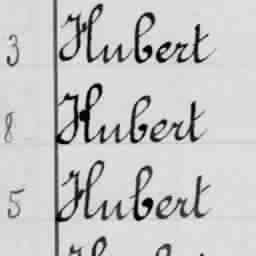 3 Hubert
8 Hubert
5 Hubert